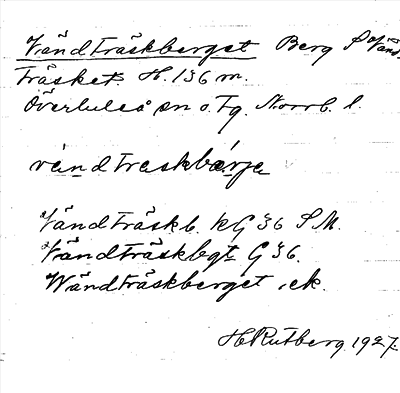 Vändträskberget Berg S Vänd-
träsket. H. 136 m.
Överluleå sn o. Tg. Norrb. l.
vändtraskbärje
Vändträskb. kG 36 S.M.
Vändträskbgt G 36.
Wändträskberget, ek.
H. Rutberg 1927.